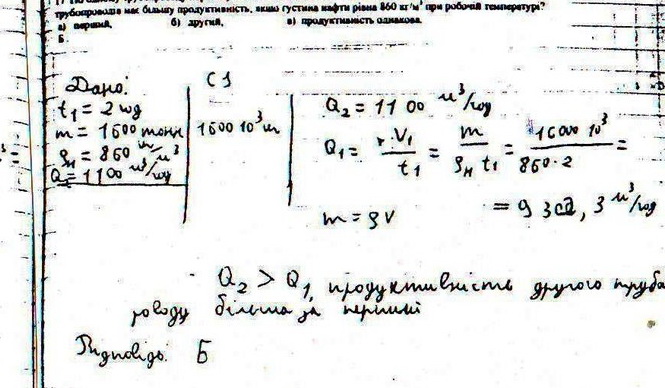 трубопроводів має більшу продуктивність, якщо густина нафти рівна 860 кг/м³ при робочій температурі?
а) перший, б) другий, в) продуктивність однакова.
Б
Дано: СІ
t₁ = 2 год
m = 1600 тонн 1600 10³
ρн = 860 м³
Q = 1100 м³/год
Q₂ = 1100 м³/год
Q₁ = V₁/t₁ = m/ρн t₁ = 1600 10³/860·2 =
= 930, 3 м³/год
m = ρV
Q₂ > Q₁, продуктивність другого трубо
роводу більша за перший
Відповідь: Б